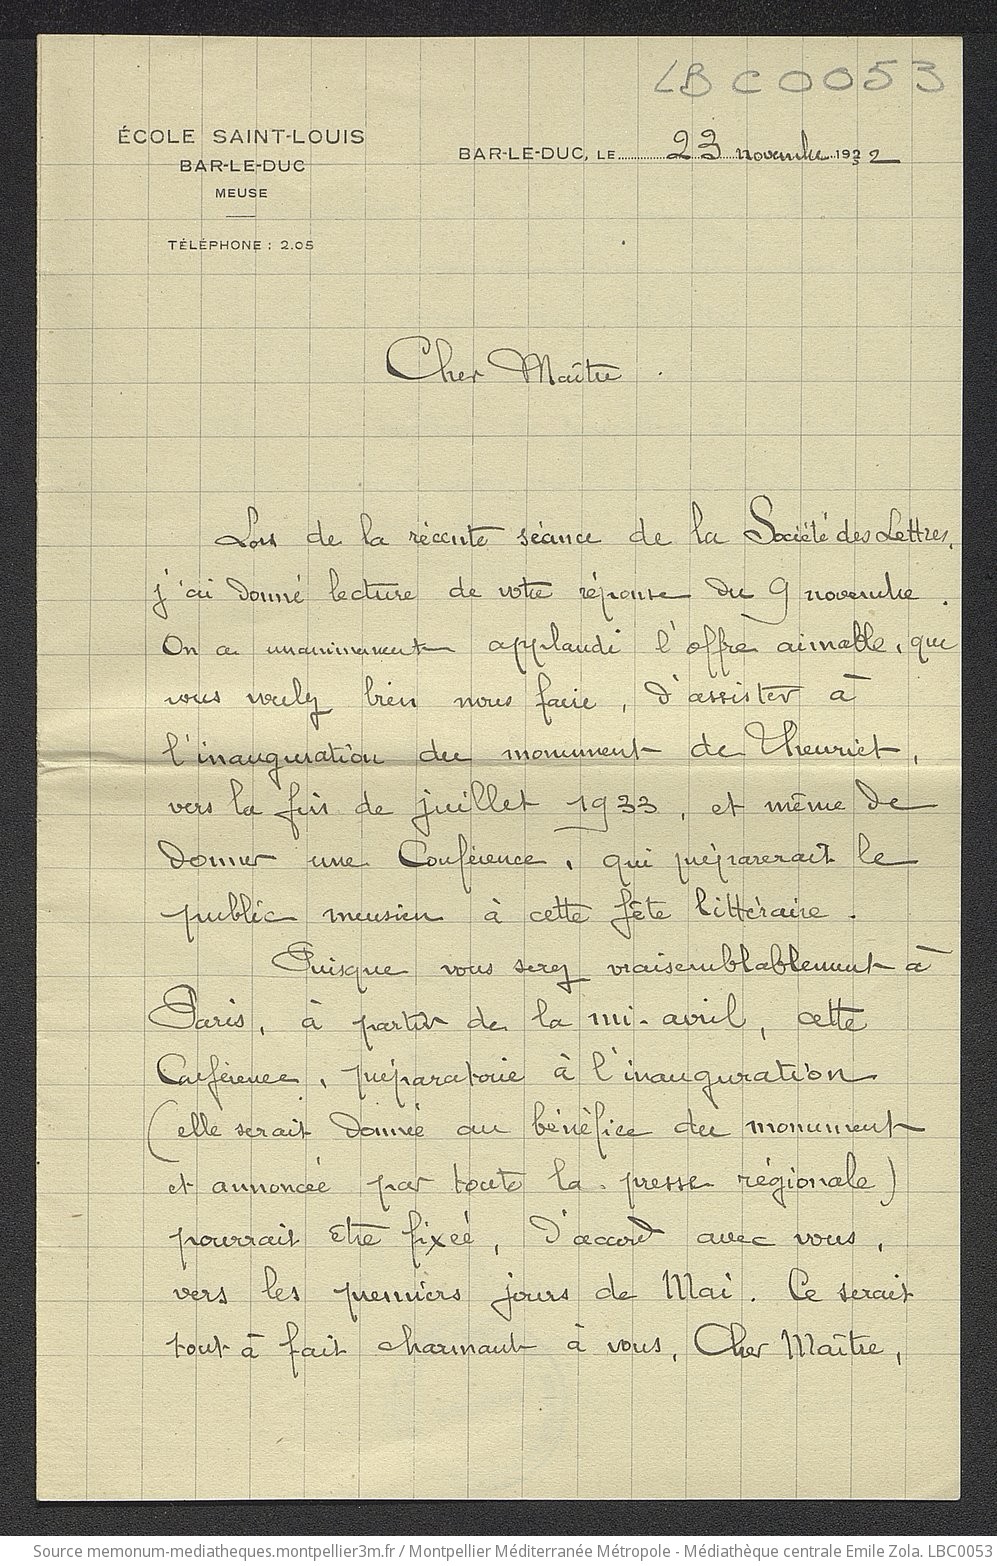 LBC0053
ÉCOLE SAINT-LOUIS
BAR-LE-DUC
MEUSE
TÉLÉPHONE : 2.05
BAR-LE-DUC, LE 23 novembre 1932
Cher Maître.
Lors de la récente séance de la Société des Lettres,
j'ai donné lecture de votre réponse du 9 novembre.
On a unanimement applaudi l'offre aimable, que
vous voulez bien nous faire, d'assister à
l'inauguration du monument de Theuriet,
vers la fin de juillet 1933, et même de
donner une Conférence, qui préparerait le
public meusien à cette fête littéraire.
Puisque vous serez vraisemblablement à
Paris, à partir de la mi-avril, cette
Conférence, préparatoire à l'inauguration
(elle serait donnée au bénéfice du monument
et annoncée par toute la presse régionale)
pourrait être fixée, d'accord avec vous,
vers les premiers jours de Mai. Ce serait
tout à fait charmant à vous, Cher Maître,
Source memonum-mediatheques.montpellier3m.fr / Montpellier Méditerranée Métropole - Médiathèque centrale Emile Zola. LBC0053